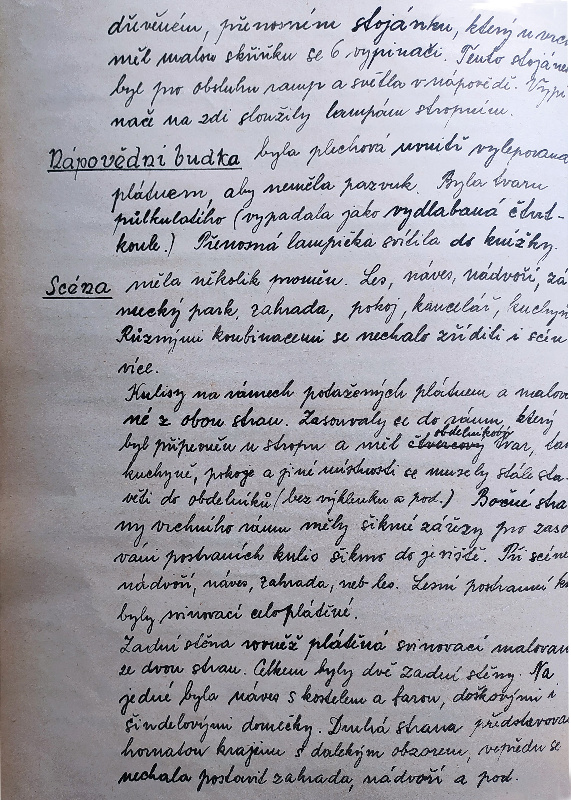 dřevěném, přenosném stojánku, který u vrch
měl malou skříňku se 6 vypinači. Tento stojáne
byl pro obsluhu ramp a světla v nápovědě. Vypi
nače na zdi sloužily lampám stropním.
Nápovědní budka byla plechová uvnitř vylepovaná
plátnem, aby neměla pazvuk. Byla tvaru
půlkulatiho (vypadala jako vydlabaná čtvrt-
koule.) Přenosná lampička svítila do knížky.
Scéna měla několik proměn. Les, náves, nádvoří, zá
mecký park, zahrada, pokoj, kancelář, kuchyň
Různými kombinacemi se nechalo zříditi i scén
více.
Kulisy na rámech potažených plátnem a malova
né z obou stran. Zasouvaly se do rámu, který
byl připevněn u stropu a měl čtvercový obdelníkový tvar, tak
kuchyně, pokoje a jiné místnosti se musely stále sta-
věti do obdelníků (bez výklenku a pod.) Bočné stra
ny vrchního rámu měly šikmé zářezy pro zaso
vání postraních kulis šikmo do jeviště. Při scéne
nádvoří, náves, zahrada, neb les. Lesní postranní k
byly svinovací celoplátěné.
Zadní stěna rovněž plátěná svinovací malovan
ze dvou stran. Celkem byly dvě zadní stěny. Na
jedné byla náves s kostelem a farou, doškovými i
šindelovými domečky. Druhá strana představova
hornatou krajinu s dalekým obzorem, vepředu se
nechala postavit zahrada, nádvoří a pod.